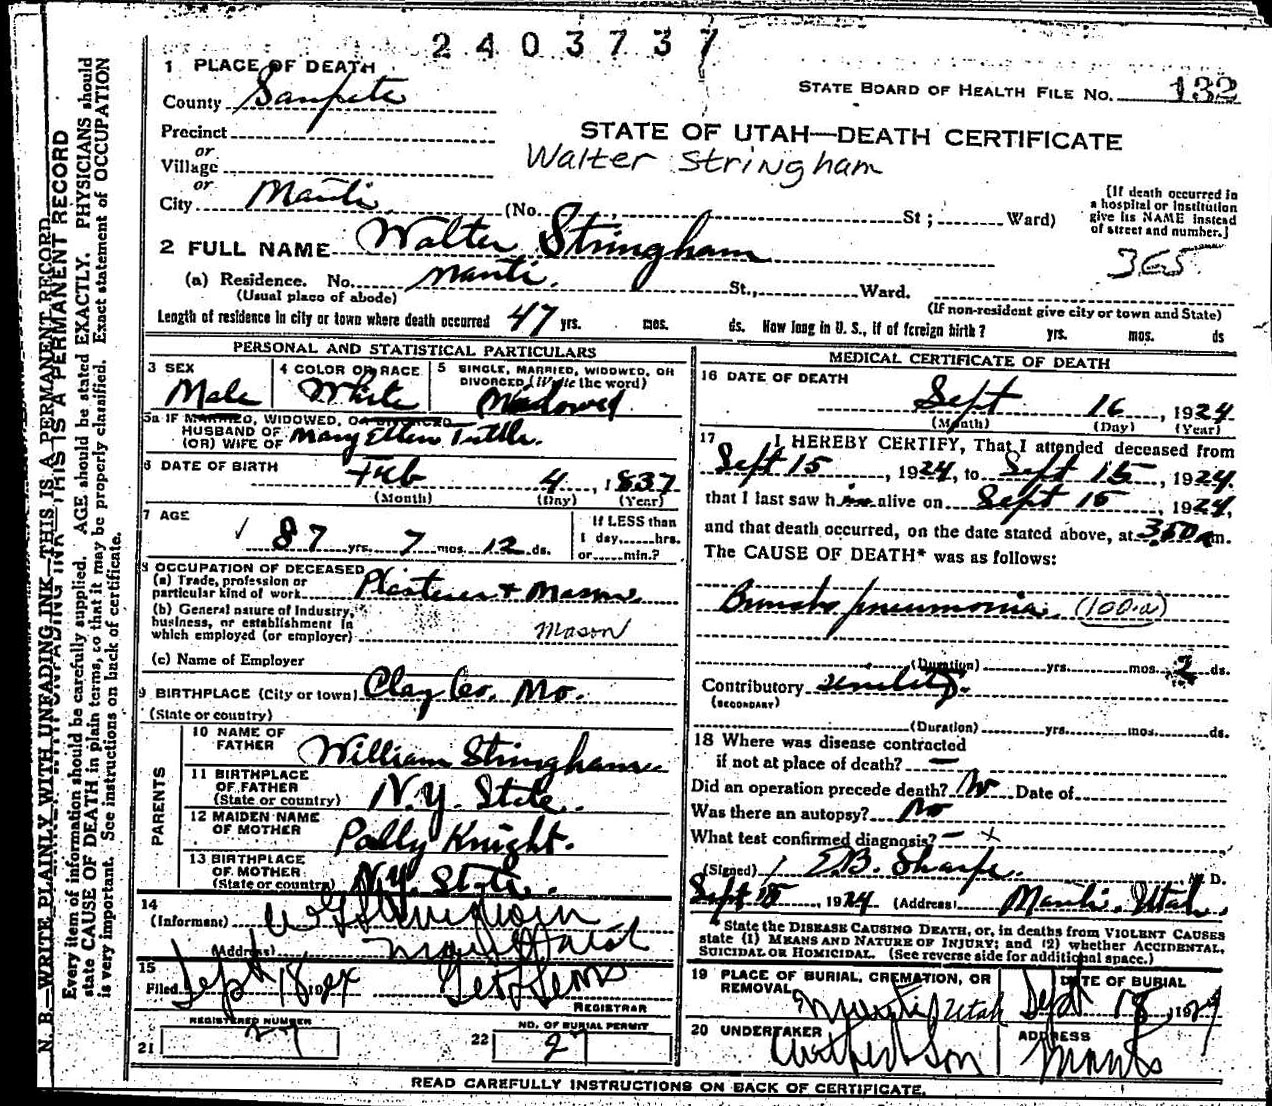 2403737
1 PLACE OF DEATH
STATE BOARD OF HEALTH FILE No. 132
County Sanpete
Precinct
STATE OF UTAH—DEATH CERTIFICATE
or
Village
Walter Stringham
or
City Manti (No. St; Ward)
[If death occurred in
a hospital or institution
give its NAME instead
of street and number.]
2 FULL NAME Walter Stringham
365
(a) Residence. No. Manti. St., Ward.
(Usual place of abode)
(If non-resident give city or town and State)
Length of residence in city or town where death occurred 47 yrs. mos. ds. How long in U. S., if of foreign birth? yrs. mos. ds
PERSONAL AND STATISTICAL PARTICULARS
3 SEX
Male
4 COLOR OR RACE
White
5 SINGLE, MARRIED, WIDOWED, OR
DIVORCED (Write the word)
Widowed
5a IF MARRIED, WIDOWED, OR DIVORCED
HUSBAND OF
(OR) WIFE OF Mary Ellen Tuttle.
6 DATE OF BIRTH
Feb 4, 1837
(Month) (Day) (Year)
7 AGE
87 yrs. 7 mos. 12 ds.
If LESS than
1 day, hrs.
or min.?
8 OCCUPATION OF DECEASED
(a) Trade, profession or
particular kind of work Plasterer + Mason.
(b) General nature of Industry,
business, or establishment in
which employed (or employer) Mason
(c) Name of Employer
9 BIRTHPLACE (City or town) Clay Co. Mo.
(State or country)
PARENTS
10 NAME OF
FATHER William Stringham
11 BIRTHPLACE
OF FATHER
(State or country) N.Y. State.
12 MAIDEN NAME
OF MOTHER Polly Knight.
13 BIRTHPLACE
OF MOTHER
(State or country) N.Y. State.
14
(Informant) Stringham
(Address)
15
Filed Sept 18 1924
REGISTRAR
REGISTERED NUMBER
21 27
NO. OF BURIAL PERMIT
22 27
MEDICAL CERTIFICATE OF DEATH
16 DATE OF DEATH
Sept 16, 1924.
(Month) (Day) (Year)
17 I HEREBY CERTIFY, That I attended deceased from
Sept 15, 1924, to Sept 15, 1924.
that I last saw him alive on Sept 15, 1924,
and that death occurred, on the date stated above, at 350 a m.
The CAUSE OF DEATH* was as follows:
Broncho pneumonia. (100-a)
(Duration) yrs. mos. 2 ds.
Contributory senility.
(SECONDARY)
(Duration) yrs. mos. ds.
18 Where was disease contracted
if not at place of death? —
Did an operation precede death? No Date of
Was there an autopsy? No
What test confirmed diagnosis? — x
(Signed) E.B. Sharpe. M. D.
Sept 18, 1924 (Address) Manti, Utah.
* State the DISEASE CAUSING DEATH, or, in deaths from VIOLENT CAUSES
state (1) MEANS AND NATURE OF INJURY; and (2) whether ACCIDENTAL,
SUICIDAL or HOMICIDAL. (See reverse side for additional space.)
19 PLACE OF BURIAL, CREMATION, OR
REMOVAL
Manti, Utah
DATE OF BURIAL
Sept 18, 1924
20 UNDERTAKER
Son
ADDRESS
Manti
READ CAREFULLY INSTRUCTIONS ON BACK OF CERTIFICATE.
N. B.—WRITE PLAINLY WITH UNFADING INK—THIS IS A PERMANENT RECORD
Every item of information should be carefully supplied. AGE should be stated EXACTLY. PHYSICIANS should
state CAUSE OF DEATH in plain terms, so that it may be properly classified. Exact statement of OCCUPATION
is very important. See instructions on back of certificate.